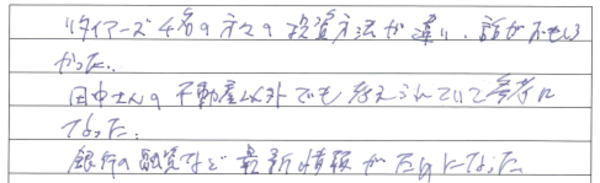 リタイアーズ4名の方々の投資方法が違い、話がおもしろ
かった。
田中さんの不動産以外でも考えられていて参考に
なった。
銀行の融資など最新情報がためになった